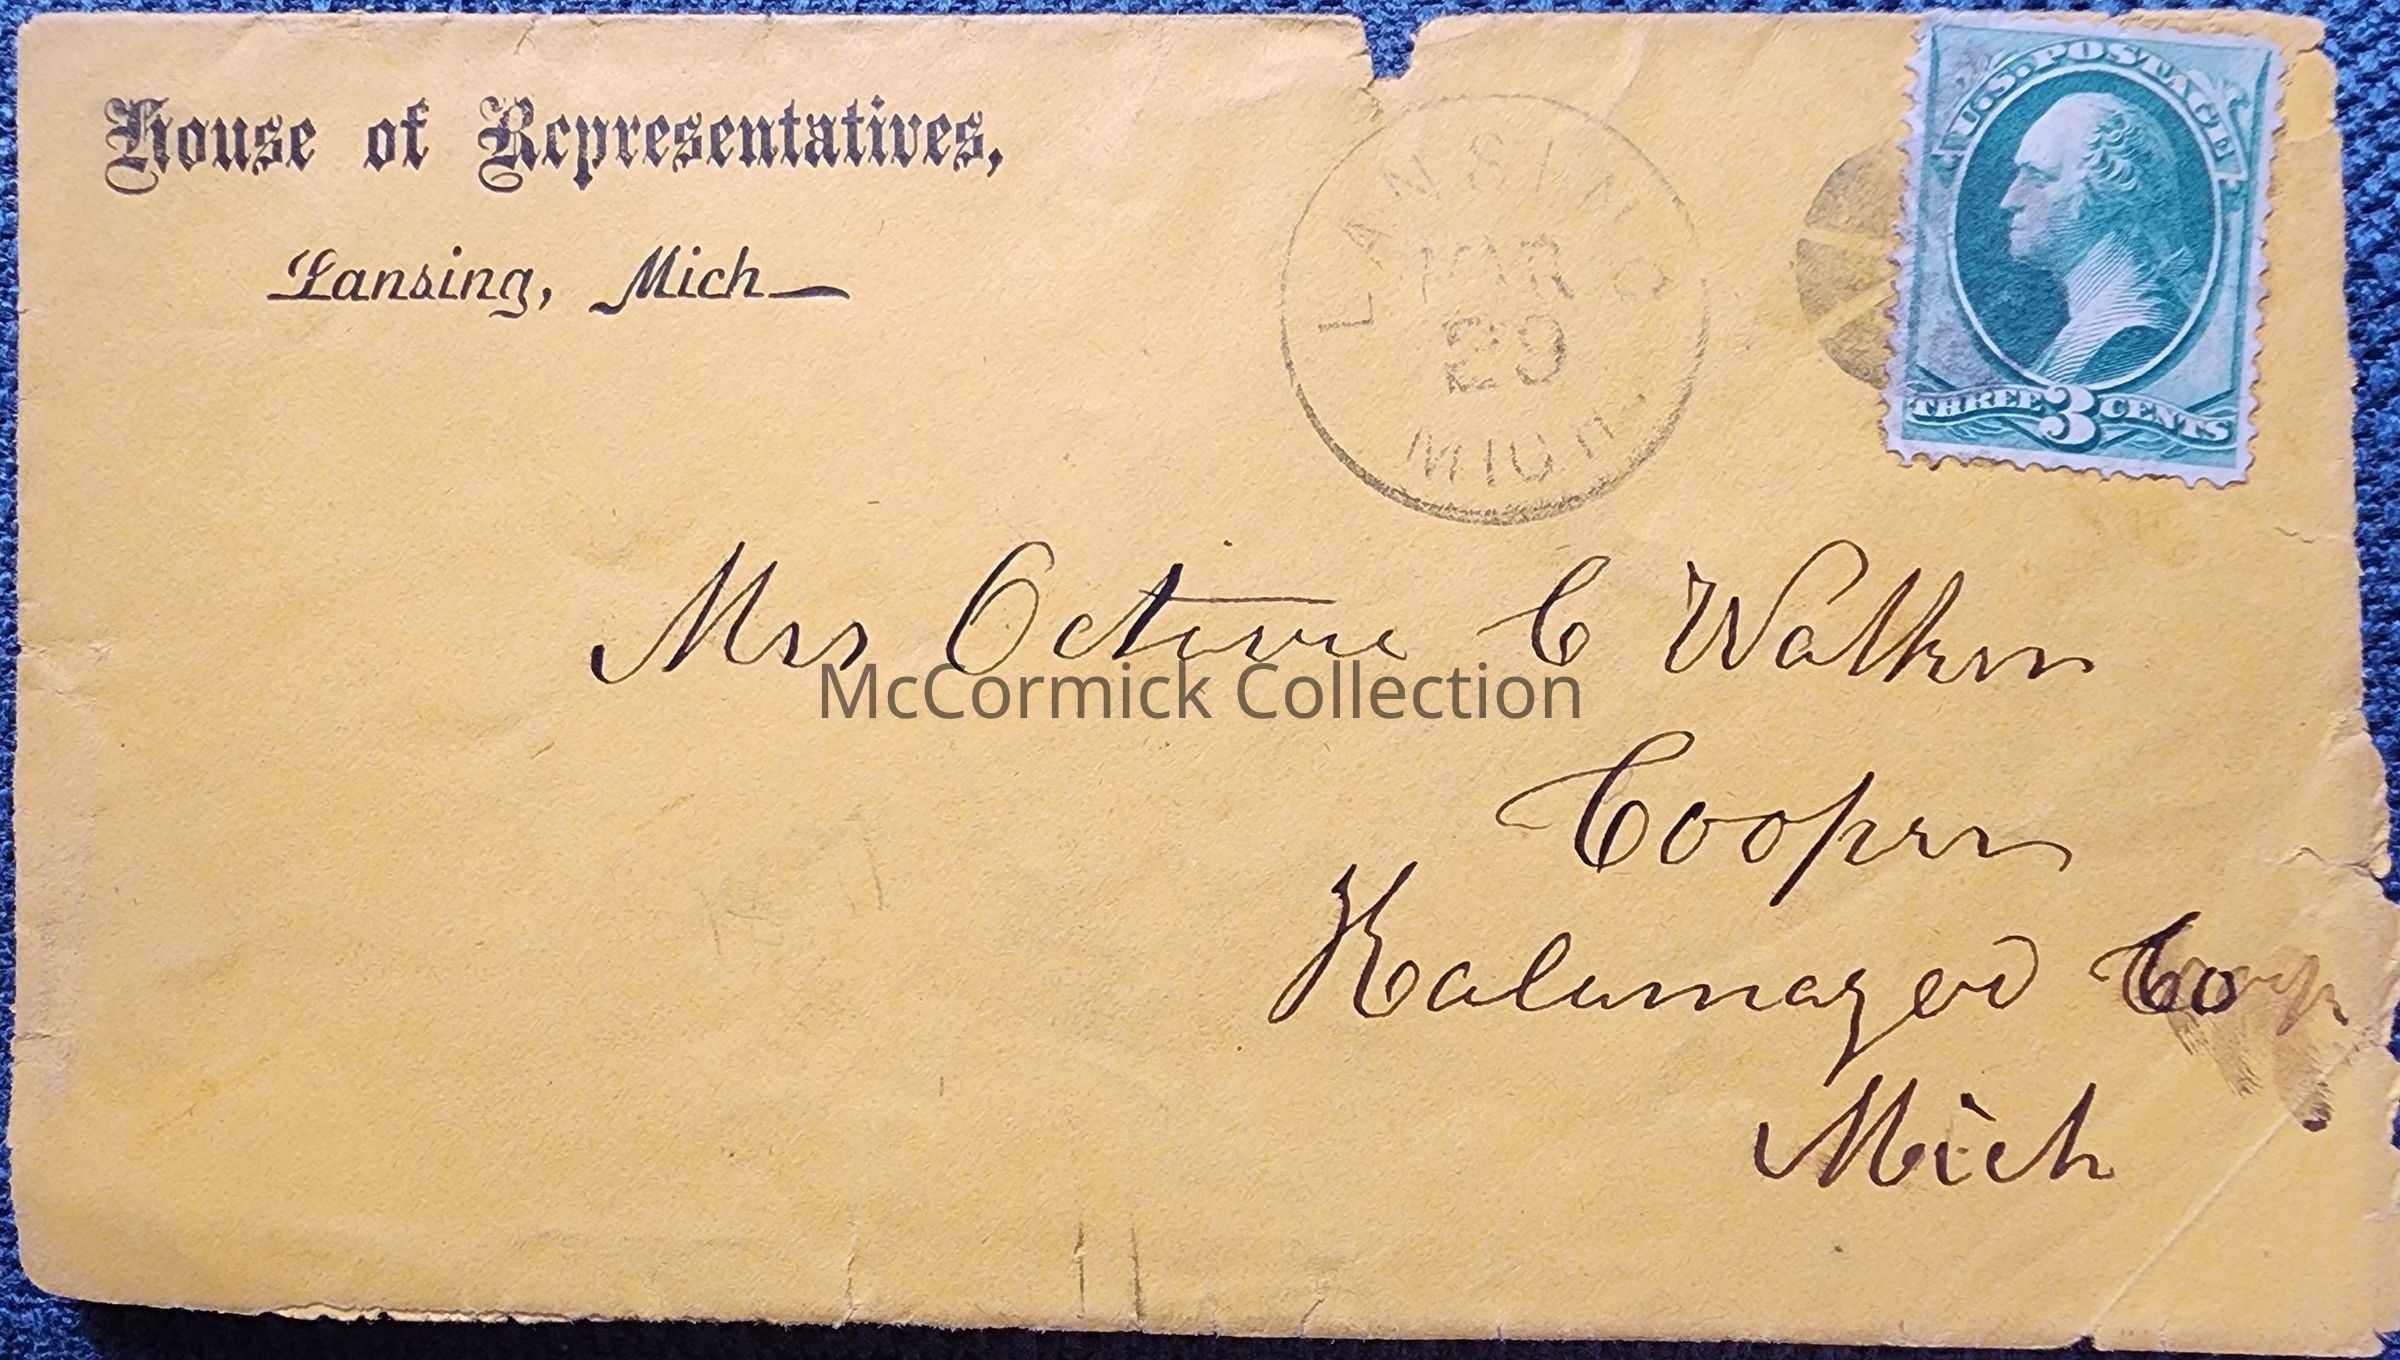 House of Representatives,
Lansing, Mich
LANSING
MAR
MICH.
U.S. POSTAGE
THREE 3 CENTS
Mrs Octavie C Walker
McCormick Collection
Cooper
Kalamazoo Co
Mich